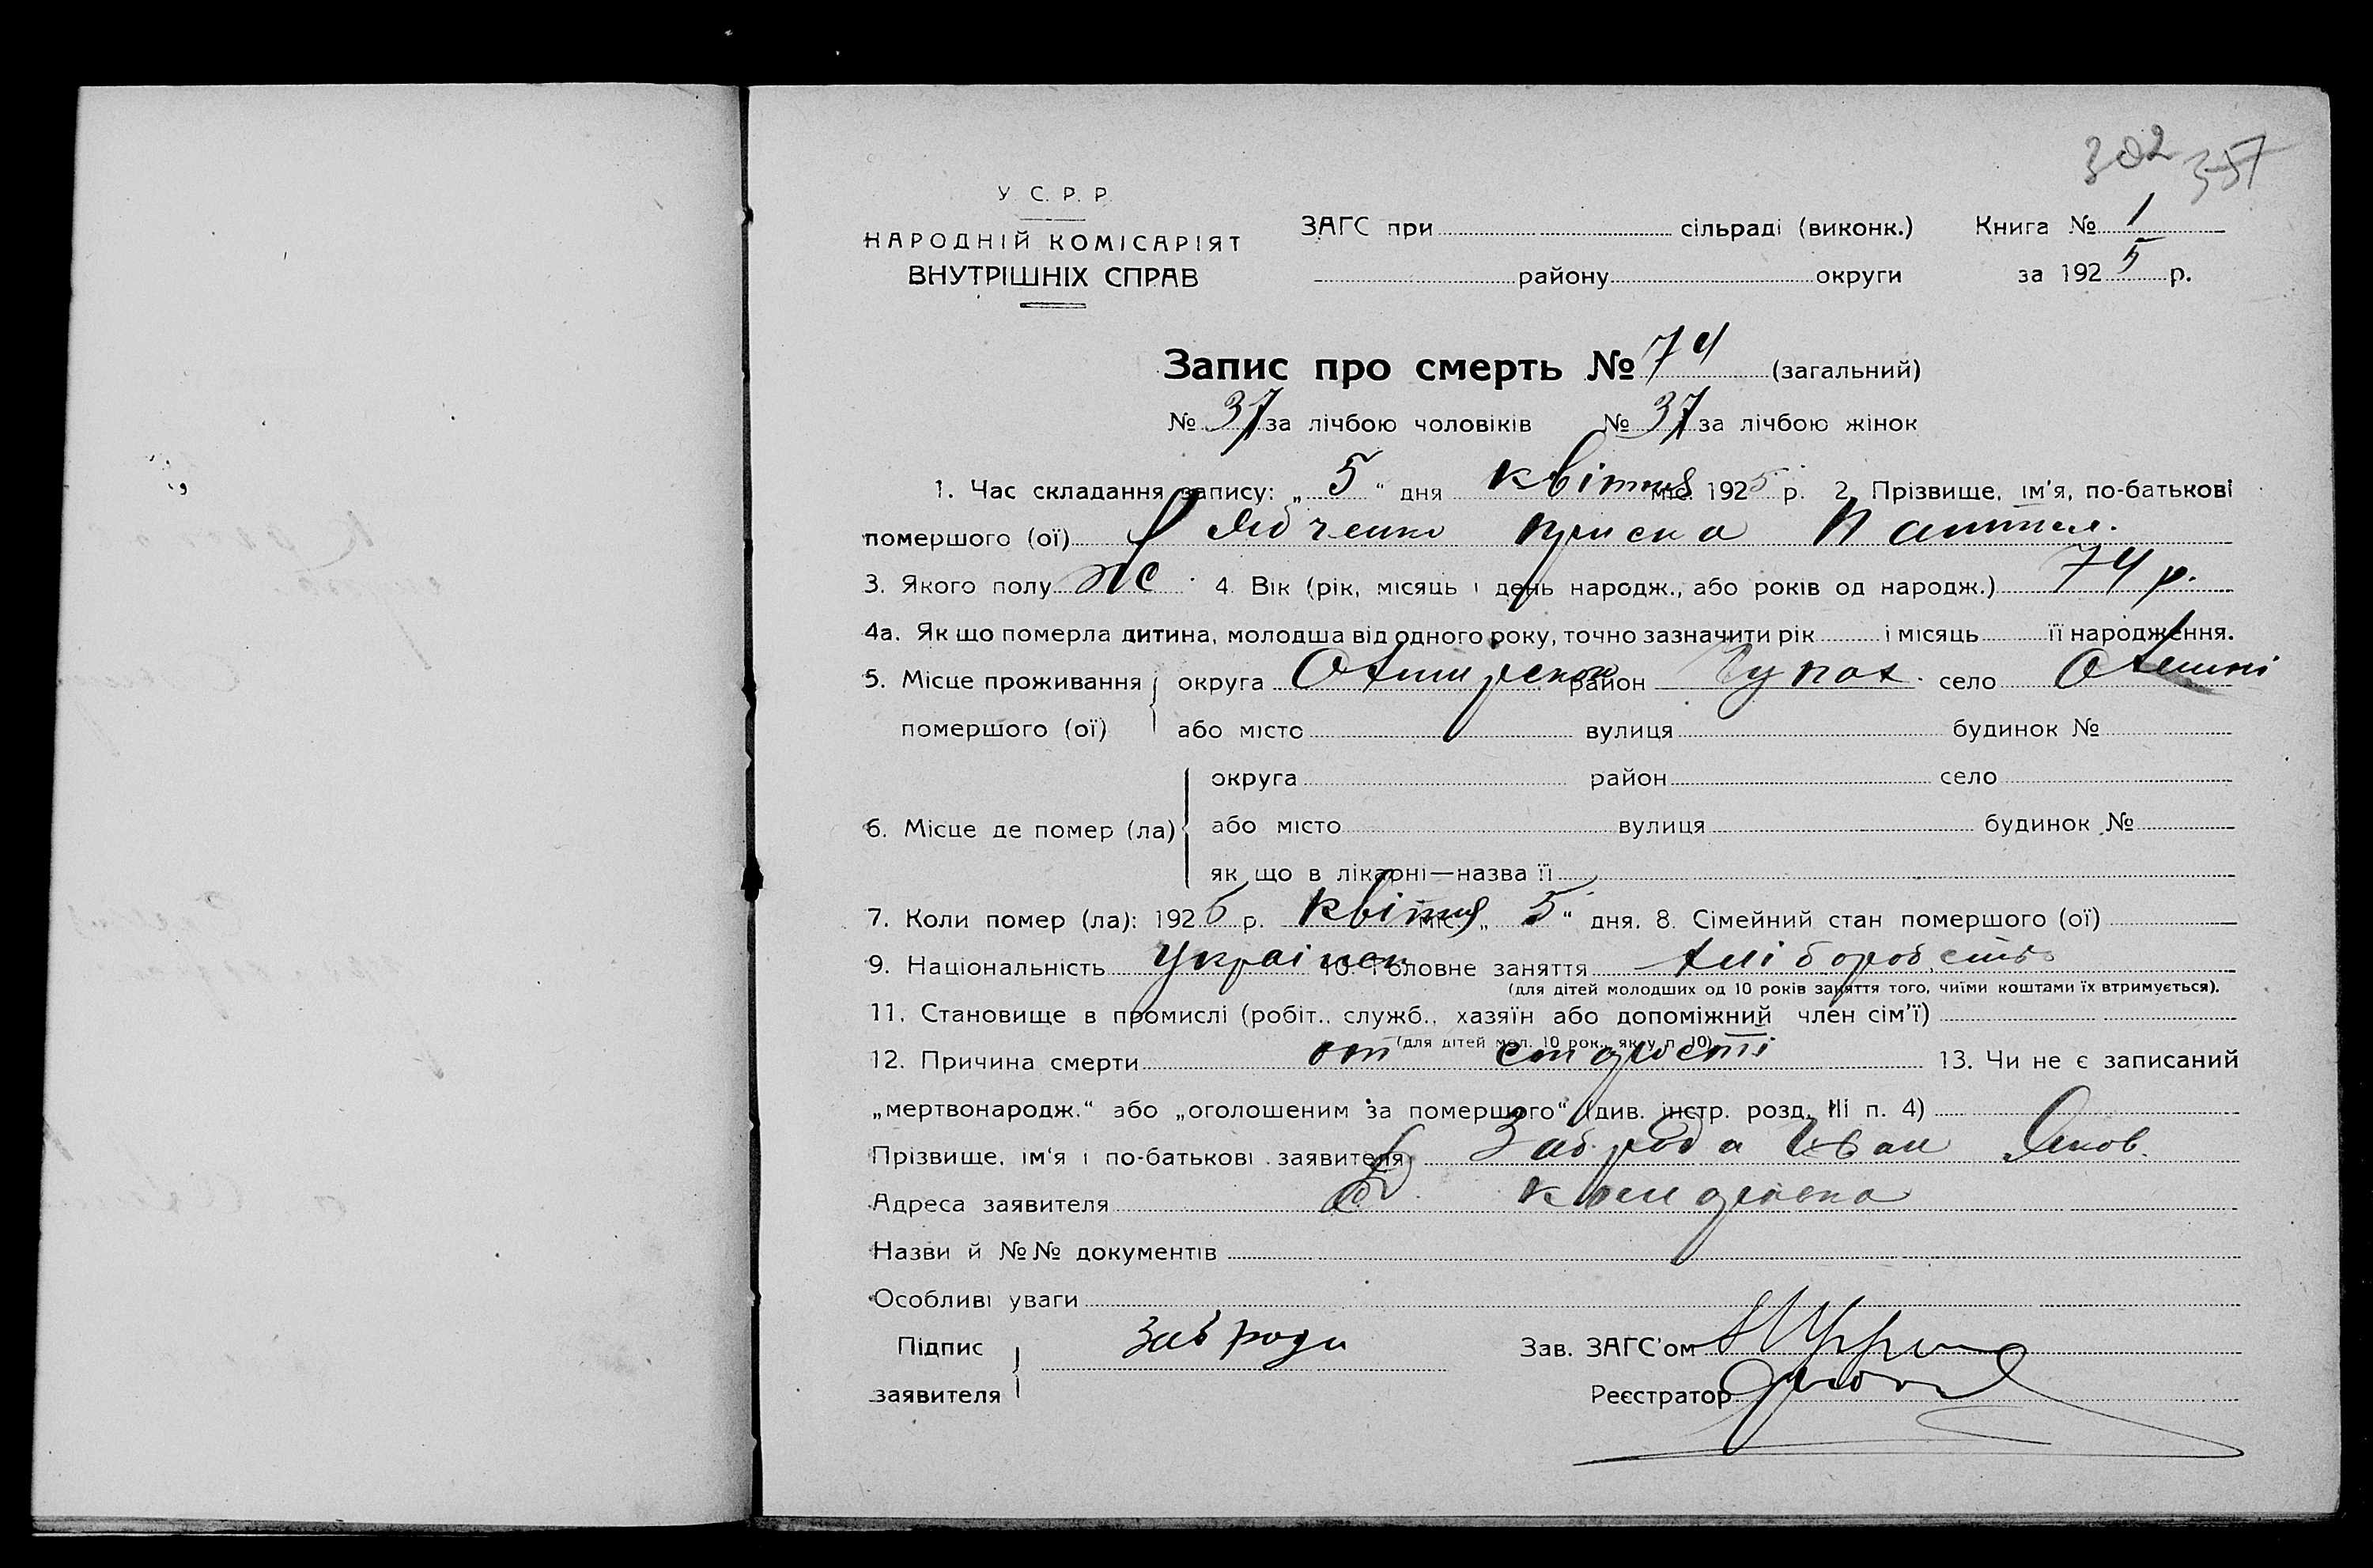 302 357
У. С. Р. Р.
НАРОДНІЙ КОМІСАРІЯТ
ВНУТРІШНІХ СПРАВ
ЗАГС при сільраді (виконк.)
району округи
Книга № 1
за 1925 р.
Запис про смерть № 74 (загальний)
№ 37 за лічбою чоловіків № 37 за лічбою жінок
1. Час складання запису: „5“ дня квітня міс. 1925 р. 2. Прізвище, ім'я, по-батькові
помершого (ої)
3. Якого полу ж. 4. Вік (рік, місяць і день народж., або років од народж.) 74 р.
4а. Як що померла дитина, молодша від одного року, точно зазначити рік і місяць її народження.
5. Місце проживання округа район Чупах. село
помершого (ої) або місто вулиця будинок №
округа район село
6. Місце де помер (ла) або місто вулиця будинок №
як що в лікарні—назва її
7. Коли помер (ла): 1925 р. квітня міс. „5“ дня. 8. Сімейний стан помершого (ої)
9. Національність Украінец 10 Головне заняття
(для дітей молодших од 10 років заняття того, чиїми коштами їх втримується).
11. Становище в промислі (робіт., служб., хазяїн або допоміжний член сім'ї)
(для дітей мол. 10 рок., як у п. 10)
12. Причина смерти от старости 13. Чи не є записаний
„мертвонародж.“ або „оголошеним за помершого“ (див. інстр. розд. III п. 4)
Прізвище, ім'я і по-батькові заявителя Заброда Іван Яков.
Адреса заявителя
Назви й №№ документів
Особливі уваги
Підпис Заброда Зав. ЗАГС'ом
заявителя Реєстратор